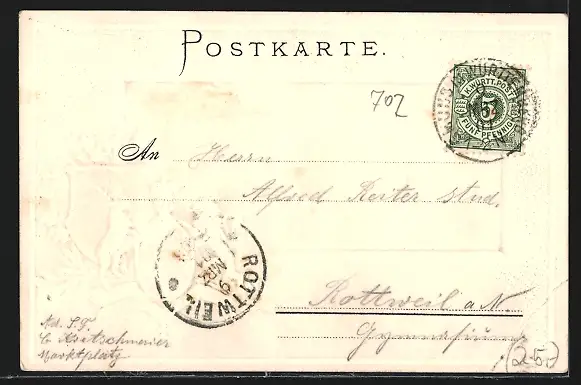 POSTKARTE.
702
K.WÜRTT.POST
5
FÜNF PFENNIG
An Herrn
Alfred Reiter stud.
ROTTWEIL
9 MRZ
Rottweil a/N
Gymnasium
Ad. S.T.
Marktplatz
(25.-)